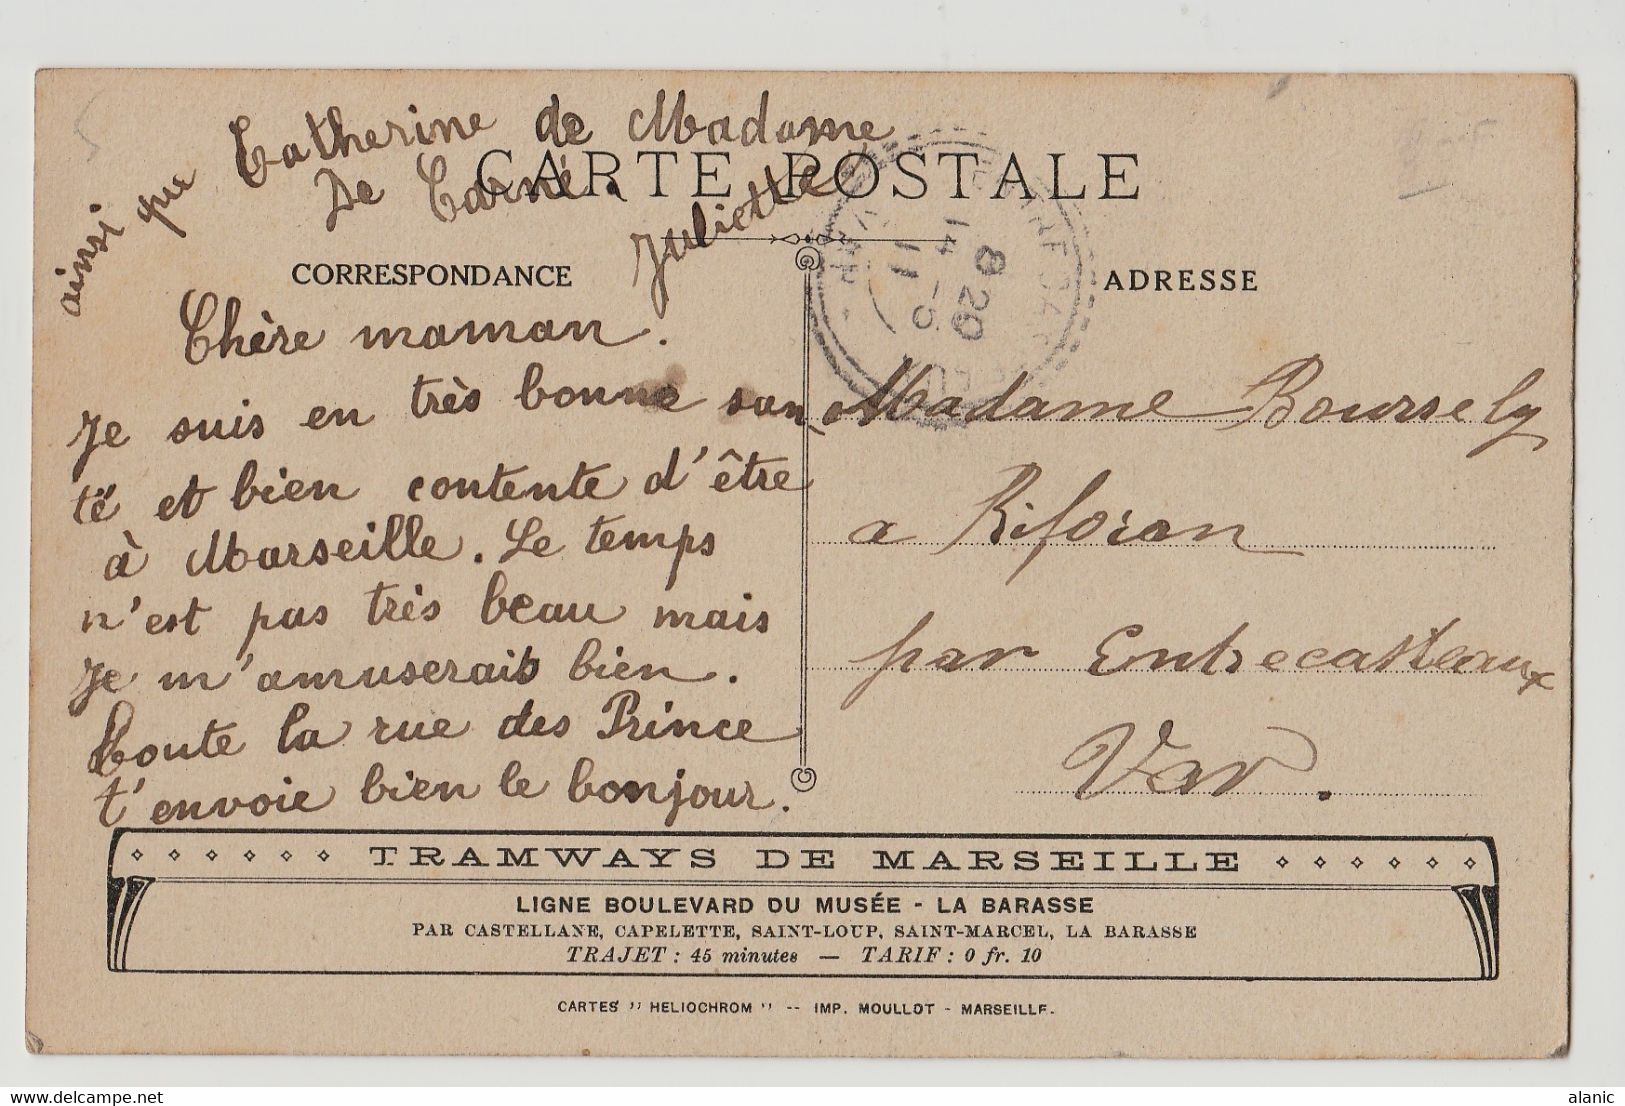 ainsi que Catherine de Madame
De Carné.
Juliette
CARTE POSTALE
CORRESPONDANCE
ADRESSE
8 20
14 - 5
11
VAR
Chère maman.
Je suis en très bonne san
té et bien contente d'être
à Marseille. Le temps
n'est pas très beau mais
Je m'amuserais bien.
Toute la rue des Prince
t'envoie bien le bonjour.
Madame Boursely
a Riforan
par Entrecasteaux
Var.
TRAMWAYS DE MARSEILLE
LIGNE BOULEVARD DU MUSÉE - LA BARASSE
PAR CASTELLANE, CAPELETTE, SAINT-LOUP, SAINT-MARCEL, LA BARASSE
TRAJET : 45 minutes — TARIF : 0 fr. 10
CARTES " HELIOCHROM " -- IMP. MOULLOT - MARSEILLE.
alanic